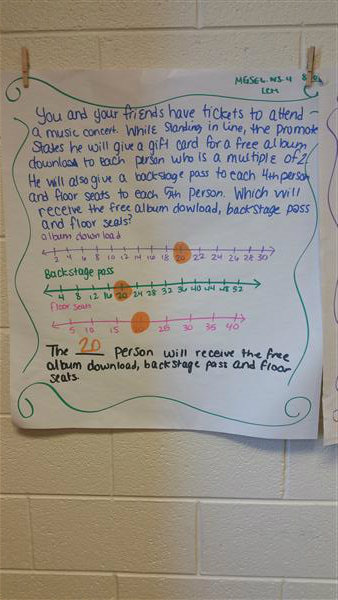 MGSE6.NS.4
LCM
You and your friends have tickets to attend
a music concert. While standing in line, the promote
states he will give a gift card for a free album
download to each person who is a multiple of 2.
He will also give a backstage pass to each 4th person
and floor seats to each 5th person. Which will
receive the free album dowload, backstage pass
and floor seats?
album download
2 4 6 8 10 12 14 16 18 20 22 24 26 28 30
Backstage pass
4 8 12 16 20 24 28 32 36 40 44 48 52
floor seats
5 10 15 20 25 30 35 40
The 20 person will receive the free
album download, backstage pass and floor
seats.